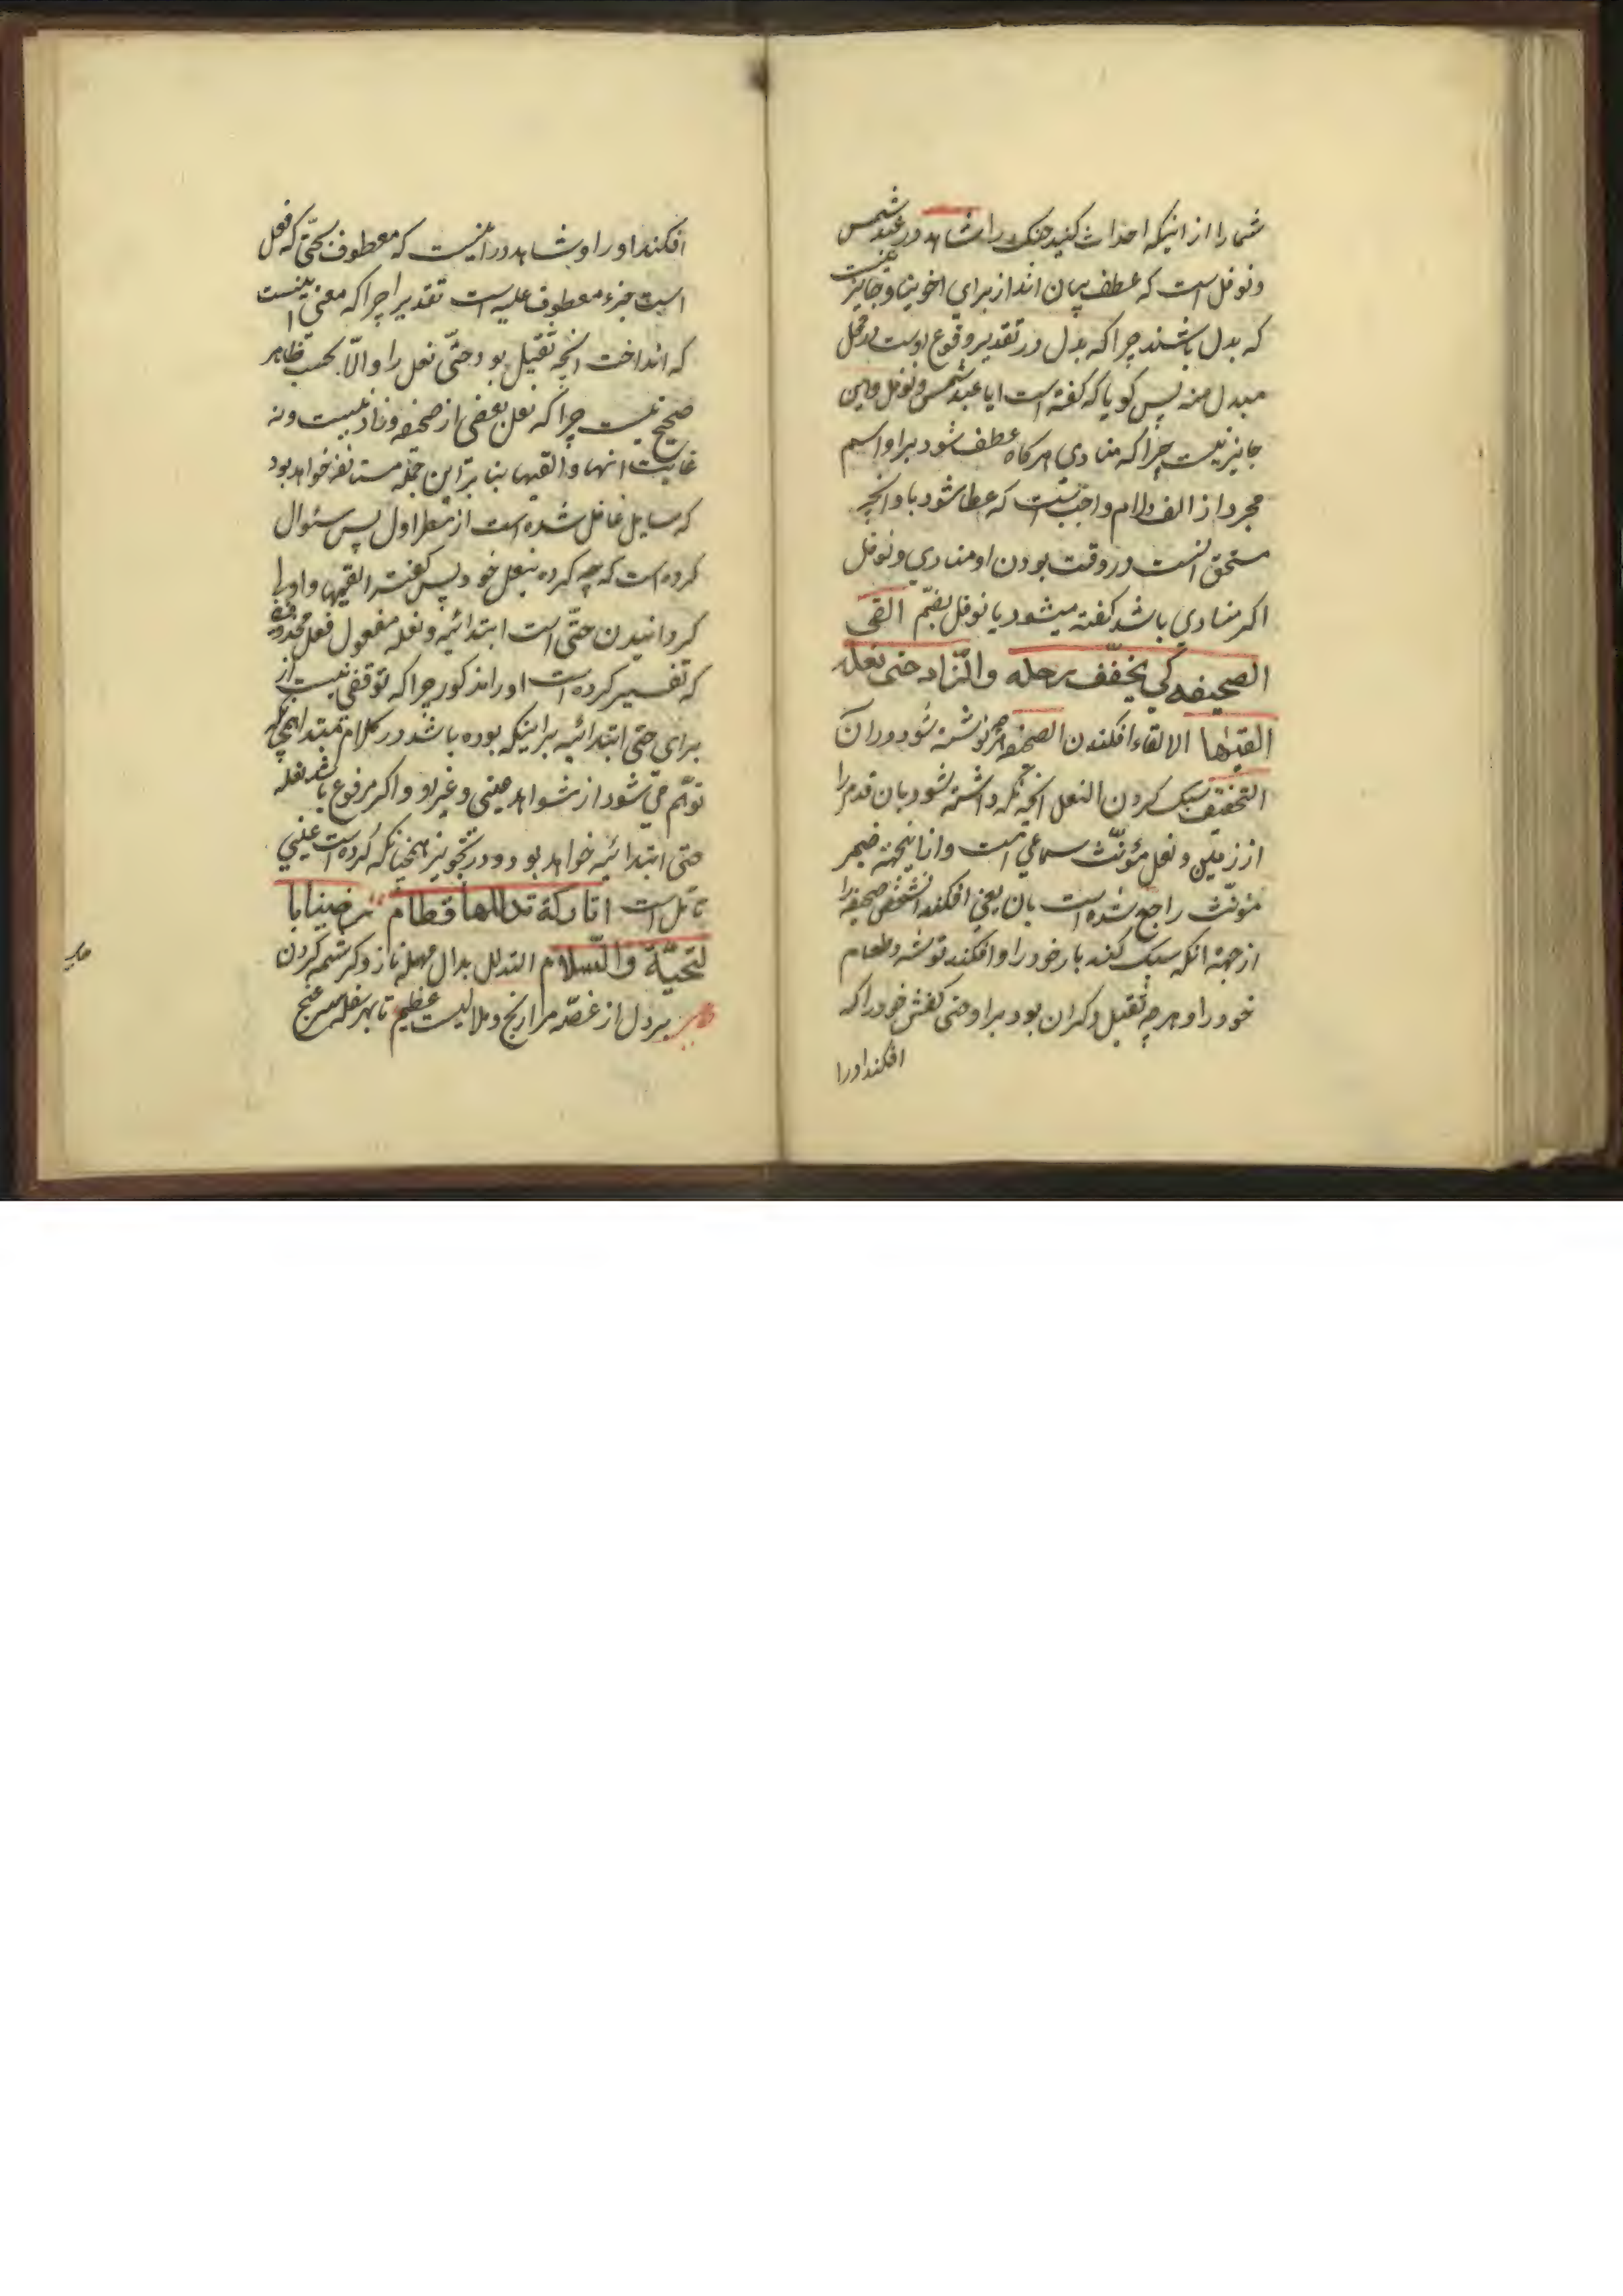 شما را از اینکه احداث کنید جنک را شاهد در عبد شمس
و نوفل است که عطف بیان اند از برای اخوینا و جایز نیست
که بدل باشند چرا که بدل در تقدیر وقوع اوست در محل
مبدل منه پس کویا که کفته است ایا عبد شمس و نوفل و این
جایز نیست چرا که منادی هر کاه عطف شود بر او اسم
مجرد از الف و لام واجب است که عطا شود باو انچه
مستحق انست در وقت بودن او منادی و نوفل
اکر منادی باشد کفته میشود یا نوفل بضم القی
الصحیفه کی یخفّف رحله والزّاد حتی نعله
القیها الالقاء افکندن الصحیفه نوشته شود در ان
التخفیف سبک کردن النعل انچه نکه داشته شود بان قدم را
از زمین و نعل مؤنّث سماعی است و از اینجهة ضمیر
مؤنّث راجع شده است بان یعنی افکند انشخص صحیفه را
از جهة انکه سبک کند بار خود را و افکند توشه و طعام
خود را و هر چه ثقیل و کران بود بر او حتی کفش خود را که
افکند او را
افکند او را و شاهد در اینست که معطوف بحتّی که نعل
است جزء معطوف علیه است تقدیرا چرا که معنی اینست
که انداخت انچه ثقیل بود حتّی نعل را و الّا بحسب ظاهر
صحیح نیست چرا که نعل بعضی از صحیفه و زاد نیست و نه
غایت انها و القیها بنا بر این جمله مستانفه خواهد بود
که سایل غافل شده است از شطر اول پس سئوال
کرده است که چه کرده بنعل خود پس کفت القیها و او را
کردانیدن حتّی است ابتدائیه و نعله مفعول فعل محذوف
که تفسیر کرده است او را مذکور چرا که توقفی نیست از
برای حتی ابتدائیه بر اینکه بوده باشد در کلام مبتدا همچنانکه
توهّم می شود از شواهد عینی و غیر او و اکر مرفوع باشد نعله
حتی ابتدائیه خواهد بود و در تجویز همچنانکه کرده است عینی
تامّل است اتارکة تدللها قطام رضینا با
لتحیّة والسّلام التدلل بدال مهمله ناز و کرشمه کردن
بر دل از غصّه مرا رنج و ملالیست عظیم